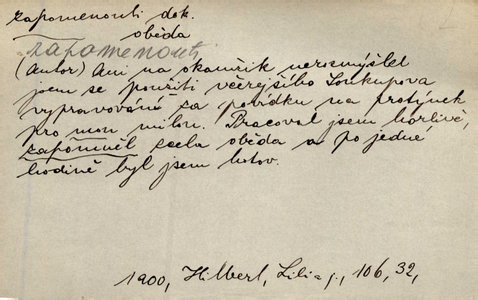 zapomenouti dok.
oběda
zapomenouti
(Autor) Ani na okamžik nerozmýšlel
jsem se použíti včerejšího Soukupova
vypravování za povídku na
pro mou milou. Pracoval jsem horlivě,
zapomněl zcela oběda a po jedné
hodině byl jsem hotov.
1900, Hilbert, Lili a j., 106, 32,